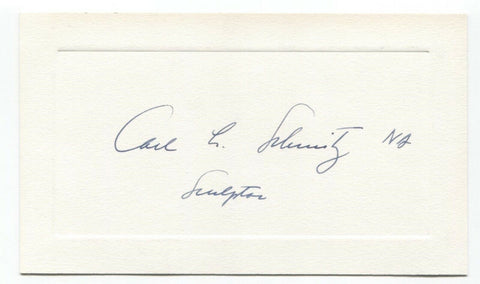 Carl L. Schmitz NA
Sculptor